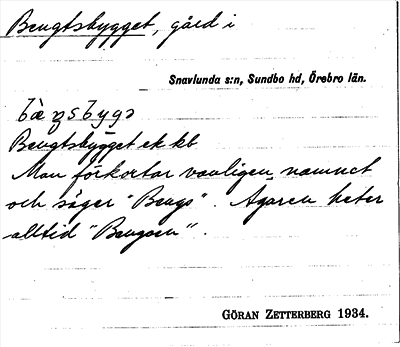 Bengtsbygget, gård i
Snavlunda s:n, Sundbo hd, Örebro län.
bæŋsbygə
Bengtsbygget ek kb
Man förkortar vanligen namnet
och säger "Bengs". Ägaren heter
alltid "Bengsen".
GÖRAN ZETTERBERG 1934.